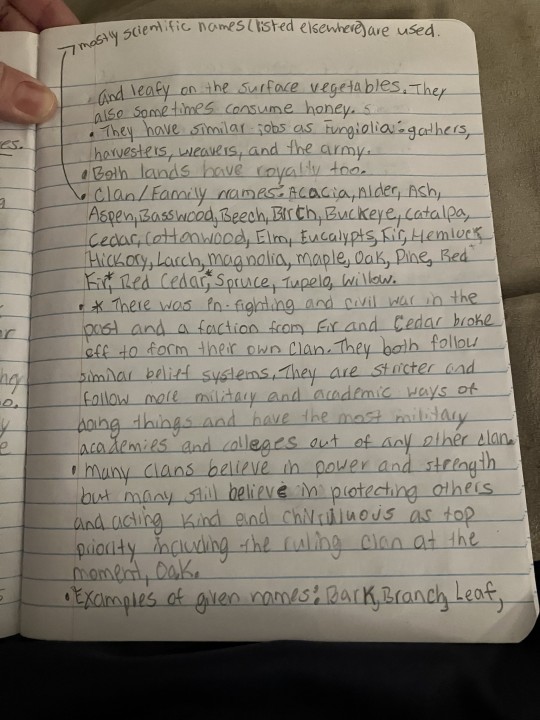 mostly scientific names (listed elsewhere) are used.
and leafy on the surface vegetables. They
also sometimes consume honey.
• They have similar jobs as Fungiolia: gathers,
harvesters, weavers, and the army.
• Both lands have royalty too.
• Clan/Family names: Acacia, Alder, Ash,
Aspen, Basswood, Beech, Birch, Buckeye, catalpa,
Cedar, Cottonwood, Elm, Eucalypts, Fir, Hemlock
Hickory, Larch, magnolia, maple, Oak, Pine, Red
Fir*, Red Cedar,* Spruce, Tupelo, Willow.
• * There was in-fighting and civil war in the
past and a faction from Fir and Cedar broke
off to form their own clan. They both follow
similar belief systems. They are stricter and
follow more military and academic ways of
doing things and have the most military
academies and colleges out of any other clan.
• Many clans believe in power and strength
but many still believe in protecting others
and acting kind and chivruluous as top
priority including the ruling clan at the
moment, Oak.
• Examples of given names: Bark, Branch, Leaf,
es.